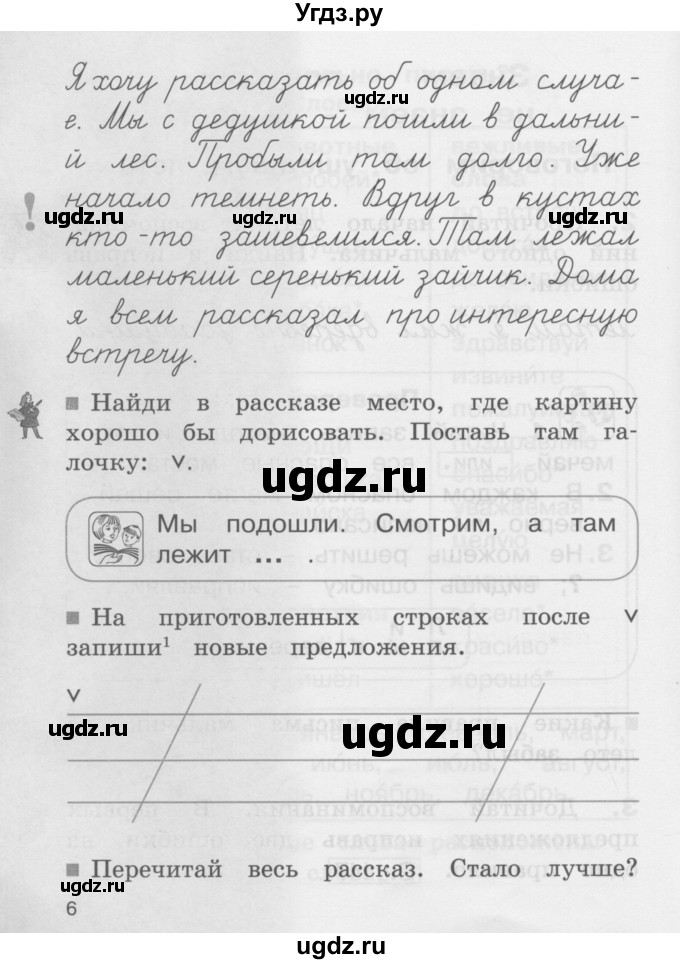 Угдз.ру
Я хочу рассказать об одном случа-
е. Мы с дедушкой пошли в дальни-
й лес. Пробыли там долго. Уже
! начало темнеть. Вдруг в кустах
кто-то зашевелился. Там лежал
маленький серенький зайчик. Дома
я всем рассказал про интересную
встречу.
■ Найди в рассказе место, где картину
хорошо бы дорисовать. Поставь там га-
лочку: ˅.
Мы подошли. Смотрим, а там
лежит ... .
■ На приготовленных строках после ˅
запиши¹ новые предложения.
˅
■ Перечитай весь рассказ. Стало лучше?
6
ugdz.ru
ugdz.ru
ugdz.ru
ugdz.ru
ugdz.ru
ugdz.ru
ugdz.ru
ugdz.ru
ugdz.ru
ugdz.ru
ugdz.ru